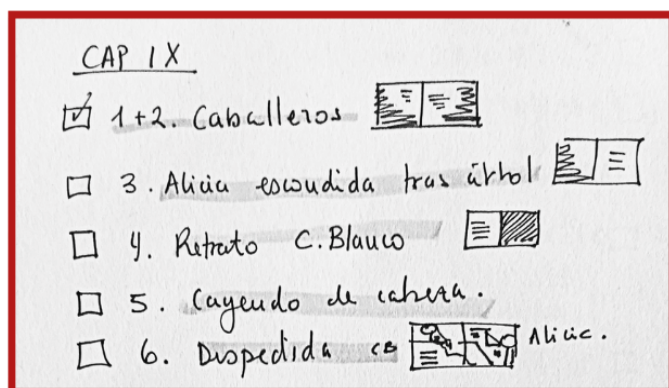 CAP IX
1+2. Caballeros
3. Alicia escondida tras árbol
4. Retrato C. Blanco
5. Cayendo de cabeza.
6. Despedida CB Alicia.